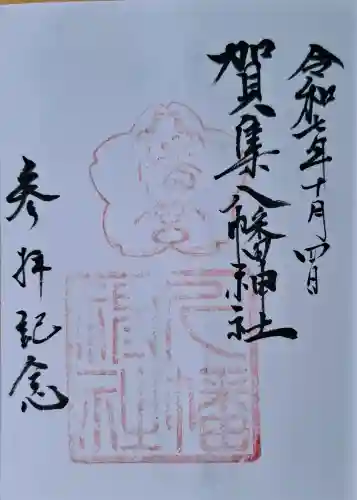 令和七年十月四日
賀集八幡神社
参拝記念
八幡
神社